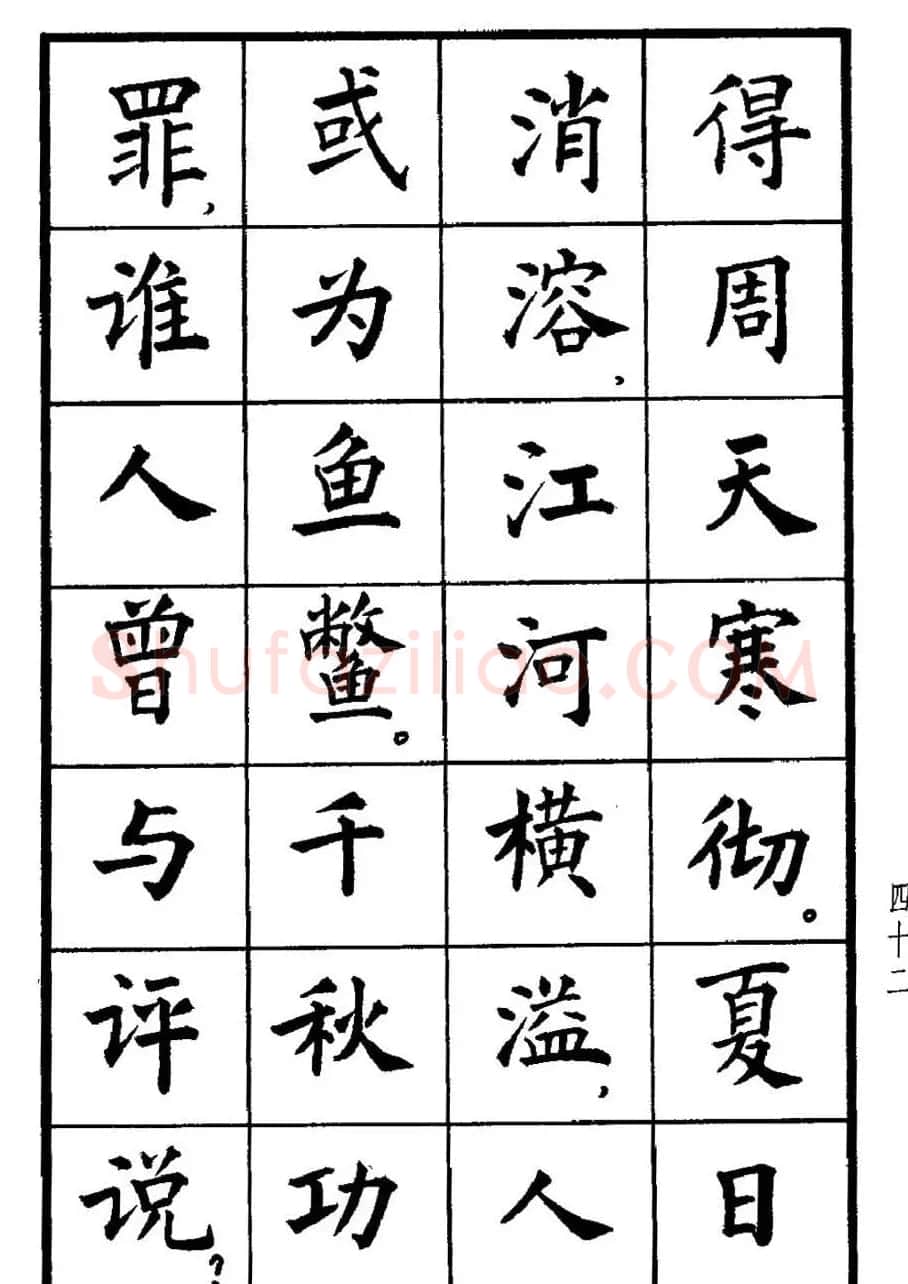 得周天寒彻。夏日
消溶，江河横溢，人
或为鱼鳖。千秋功
罪，谁人曾与评说？
四十二
Shufaziliao.COM